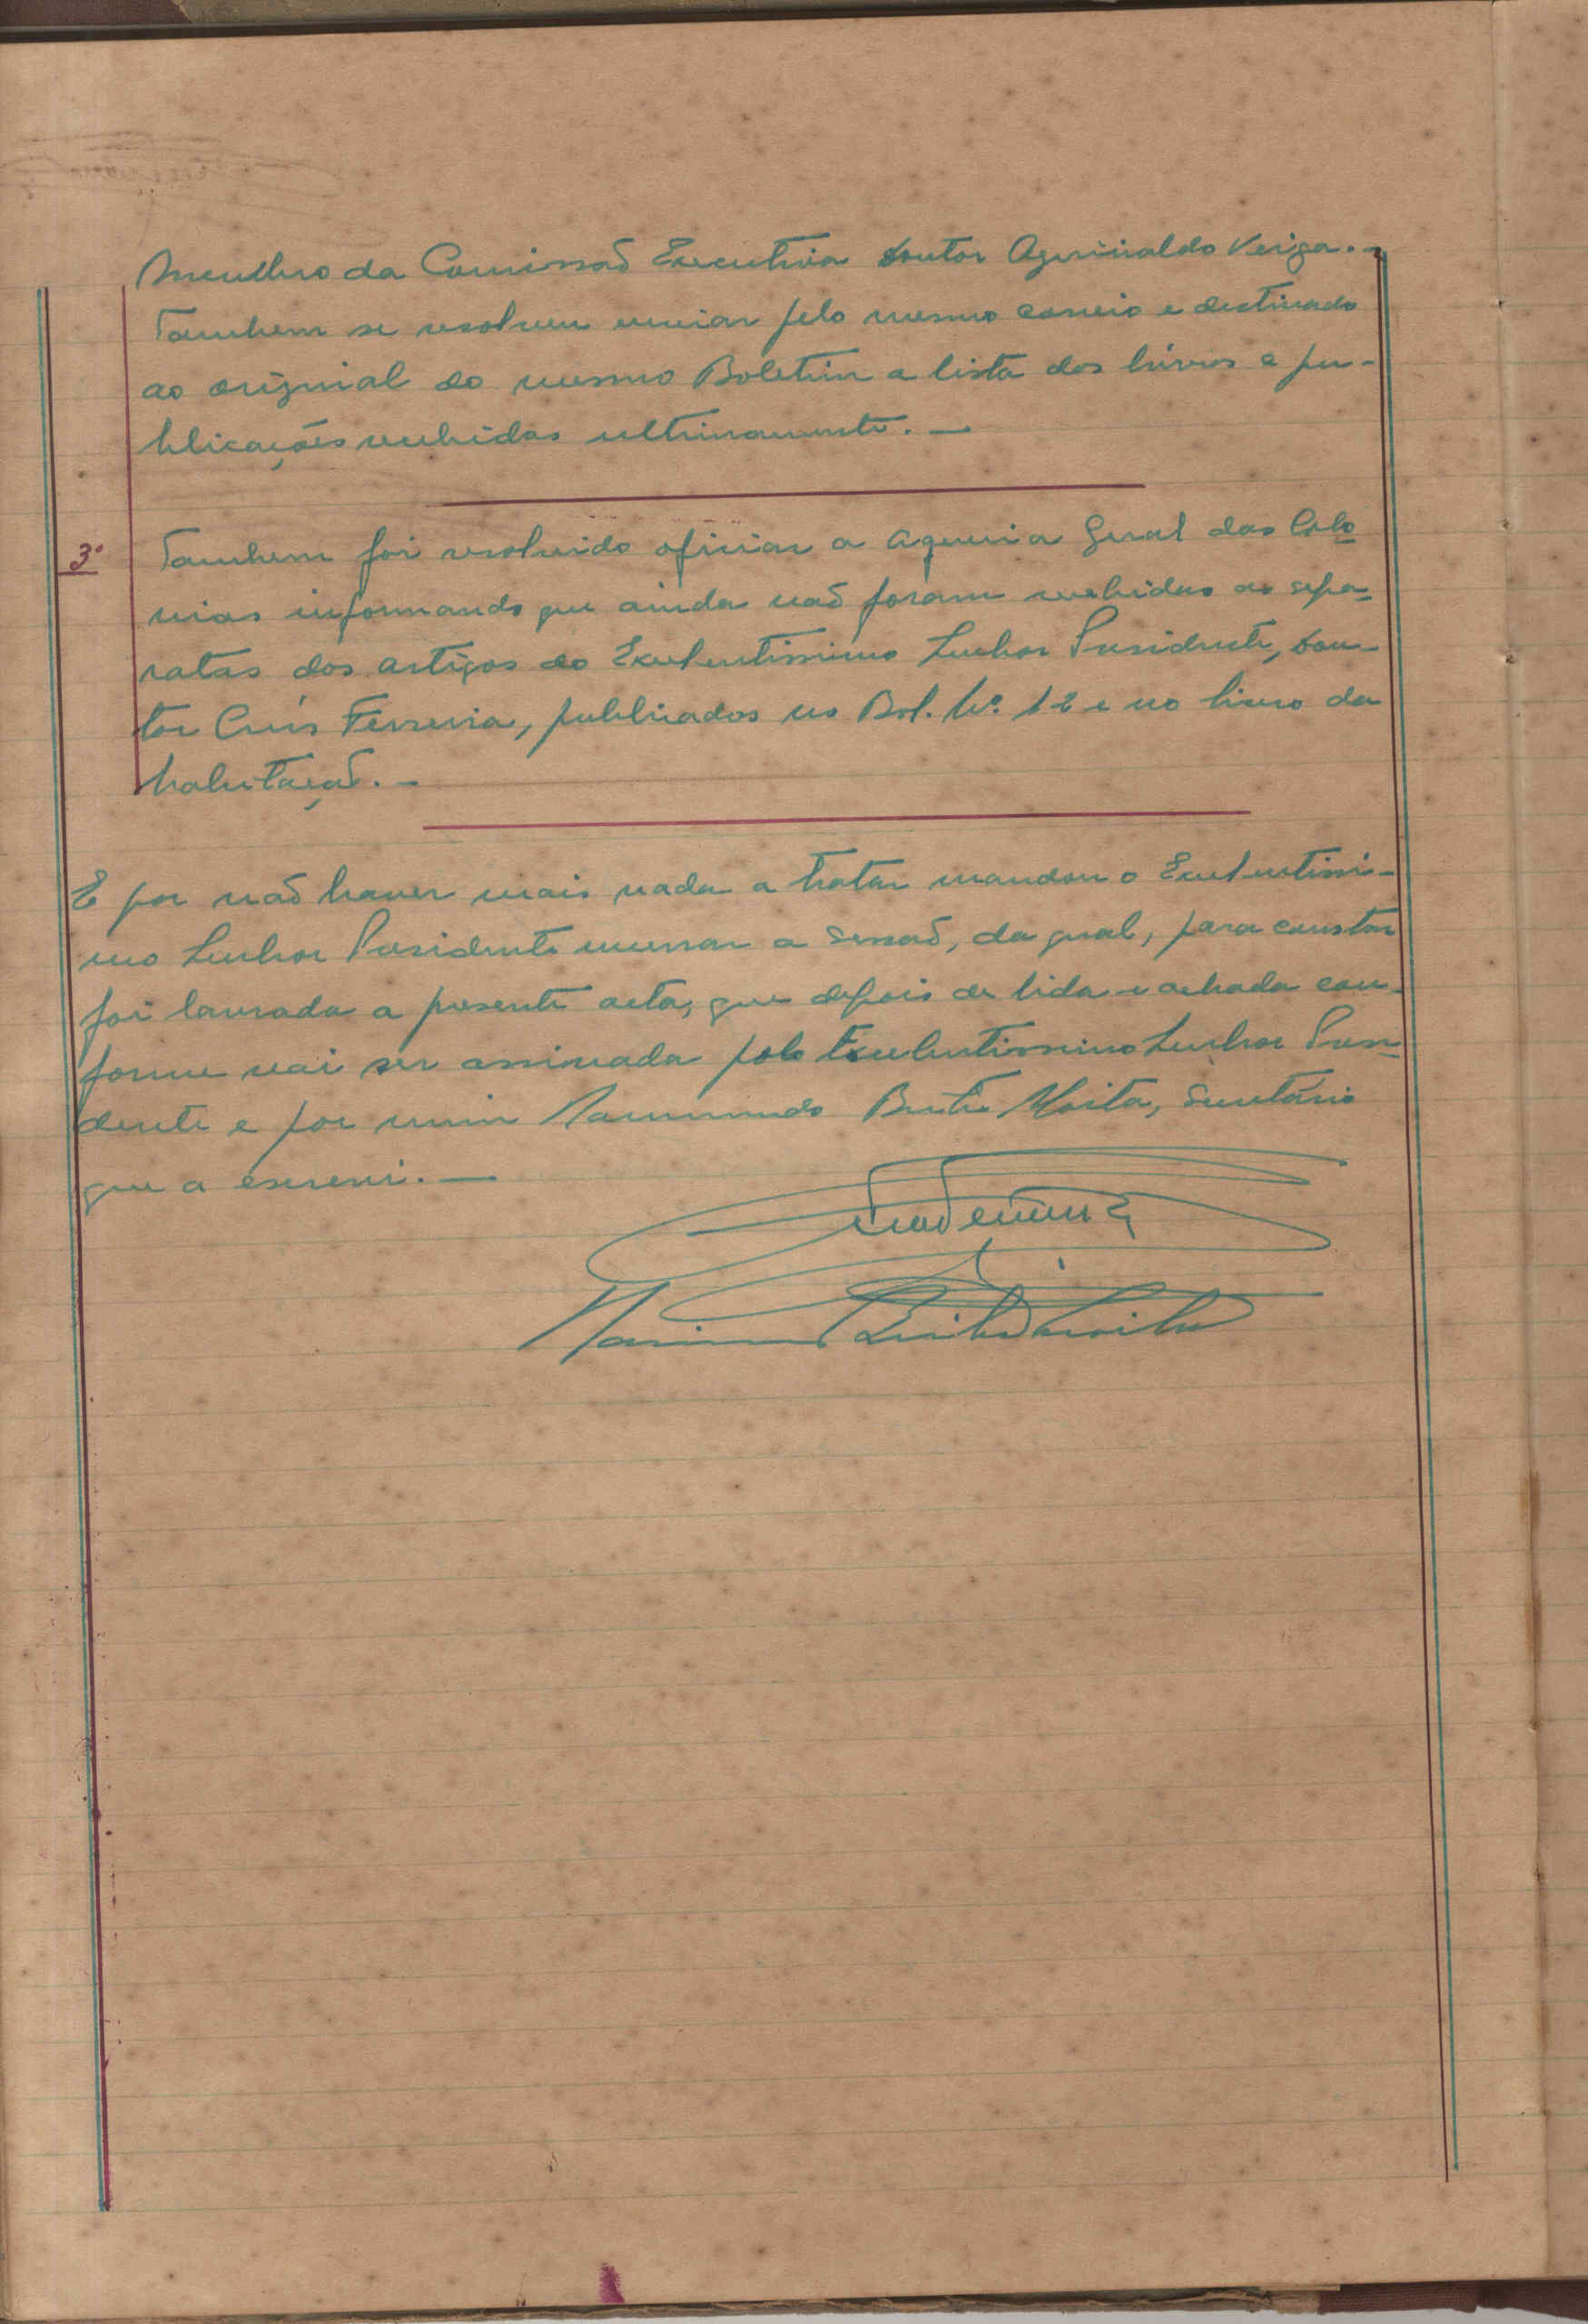 Membro da Comissaõ Executiva doutor Agrinaldo Veiga. -
Tambem se resolveu enviar pelo mesmo correio e destinado
ao original do mesmo Boletim a lista dos livros e pu-
blicações recebidas ultimamente. —
3º Tambem foi resolvido oficiar a Agencia Geral das Colo-
nias informando que ainda naõ foram recebidas as sepa-
ratas dos artigos do Excelentissimo Senhor Presidente, dou-
tor Cruz Ferreira, publicados no Bol. Nº. 12 e no livro da
habitaçaõ. -
E por naõ haver mais nada a tratar mandou o Excelentissi-
mo Senhor Presidente encerrar a sessaõ, da qual, para constar
foi lavrada a presente acta, que depois de lida e achada con-
forme vai ser assinada pelo Excelentissimo Senhor Presi-
dente e por mim Raimundo Brito Moita, Secretário
que a escrevi. —